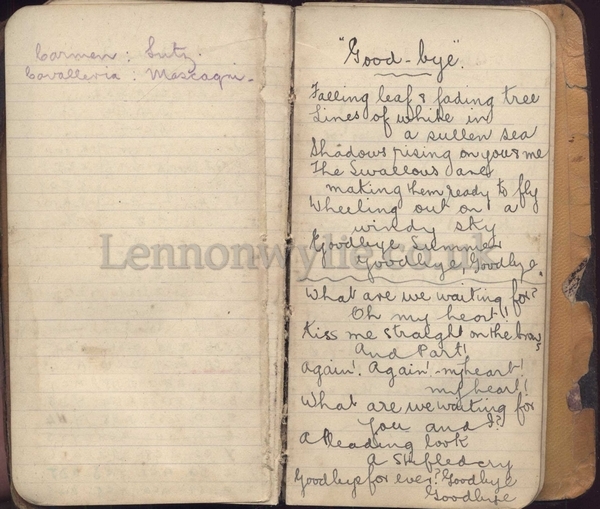 Carmen : Lutz.
Cavalleria : Mascagni.
"Good-bye".
Falling leaf & fading tree
Lines of white in
a sullen sea
Shadows rising on you & me
The Swallows are
making them ready to fly
Wheeling out on a
windy sky
Goodbye Summer
Goodbye, Goodbye.
What are we waiting for?
Oh my heart!
Kiss me straight on the brows
And Part!
Again! Again! - my heart!
my heart!
What are we waiting for
You and I?
A Pleading look
A stifled cry
Goodbye for ever? Goodbye
Goodbye
Lennonwylie.co.uk